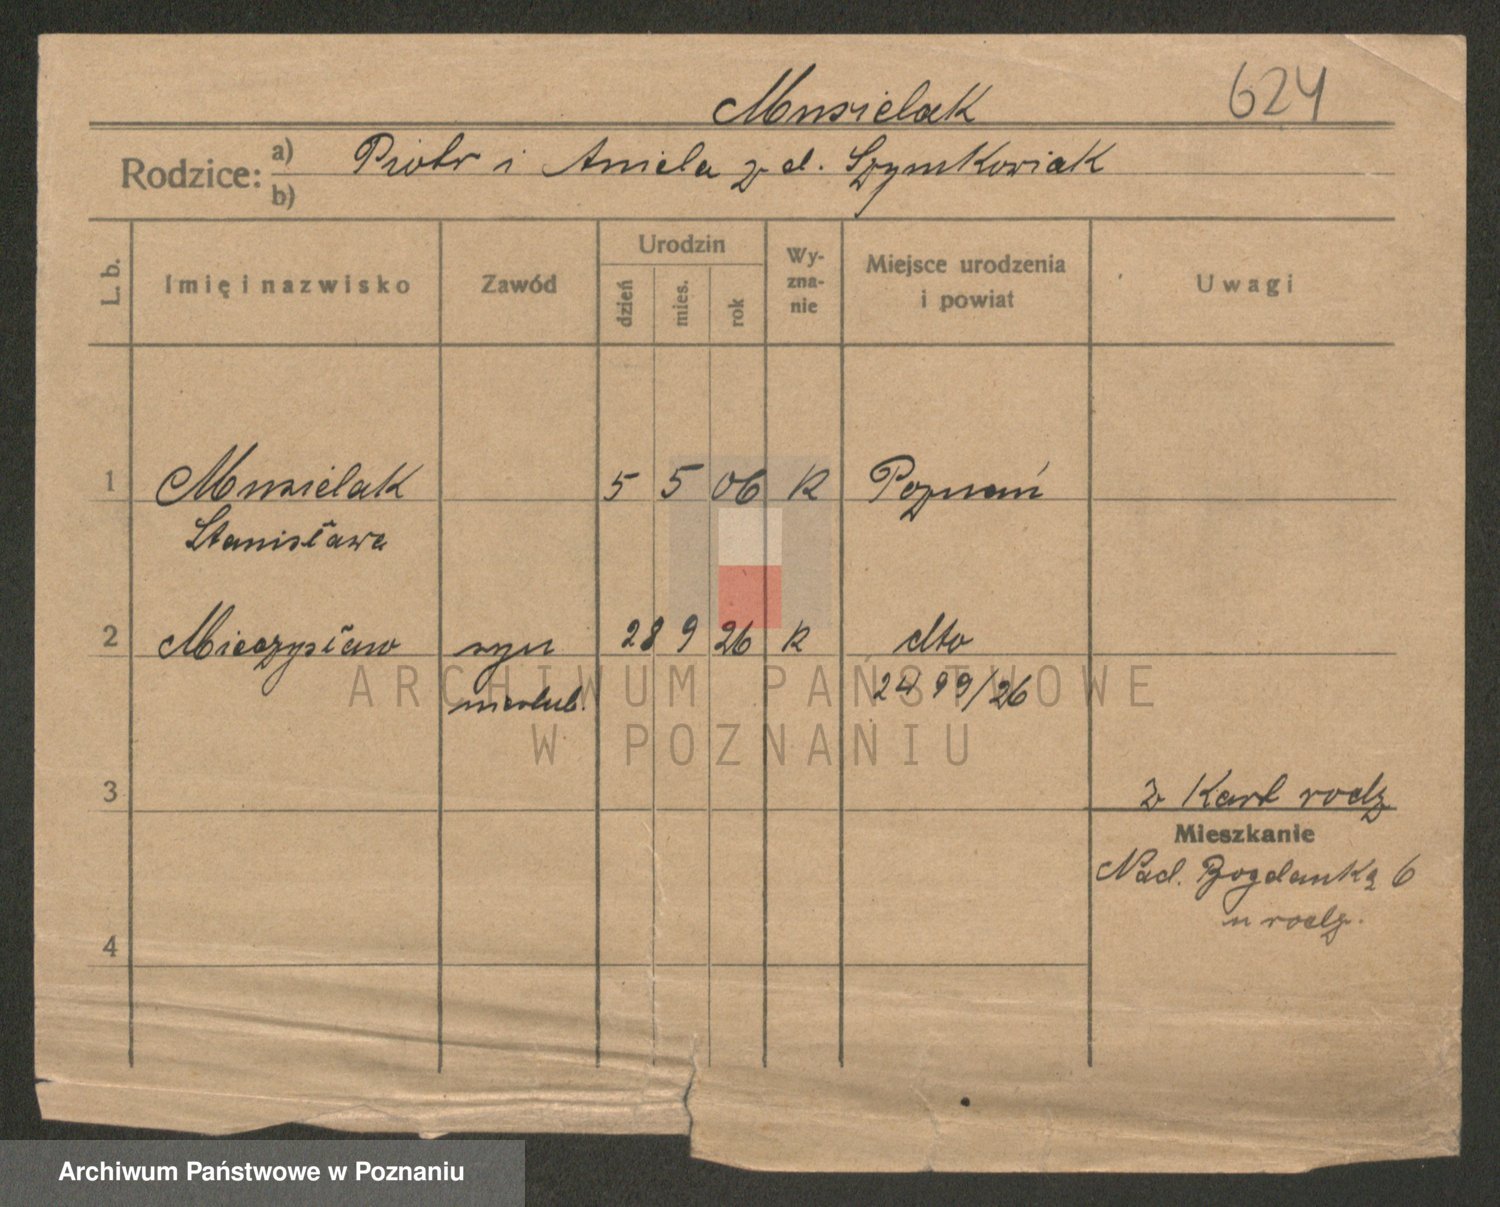 Musielak
624
Rodzice: a) Piotr i Aniela z d. Szymkowiak
b)
L. b.
Imię i nazwisko
Zawód
Urodzin
dzień
mies.
rok
Wy-
zna-
nie
Miejsce urodzenia
i powiat
Uwagi
1 Musielak 5 5 06 k Poznań
Stanisława
2 Mieczysław syn 28 9 26 k dto
nieślub. 2499/26
ARCHIWUM PAŃSTWOWE
W POZNANIU
3 z Kart rodz
Mieszkanie
Nad. Bogdanką 6
u rodz.
4
Archiwum Państwowe w Poznaniu